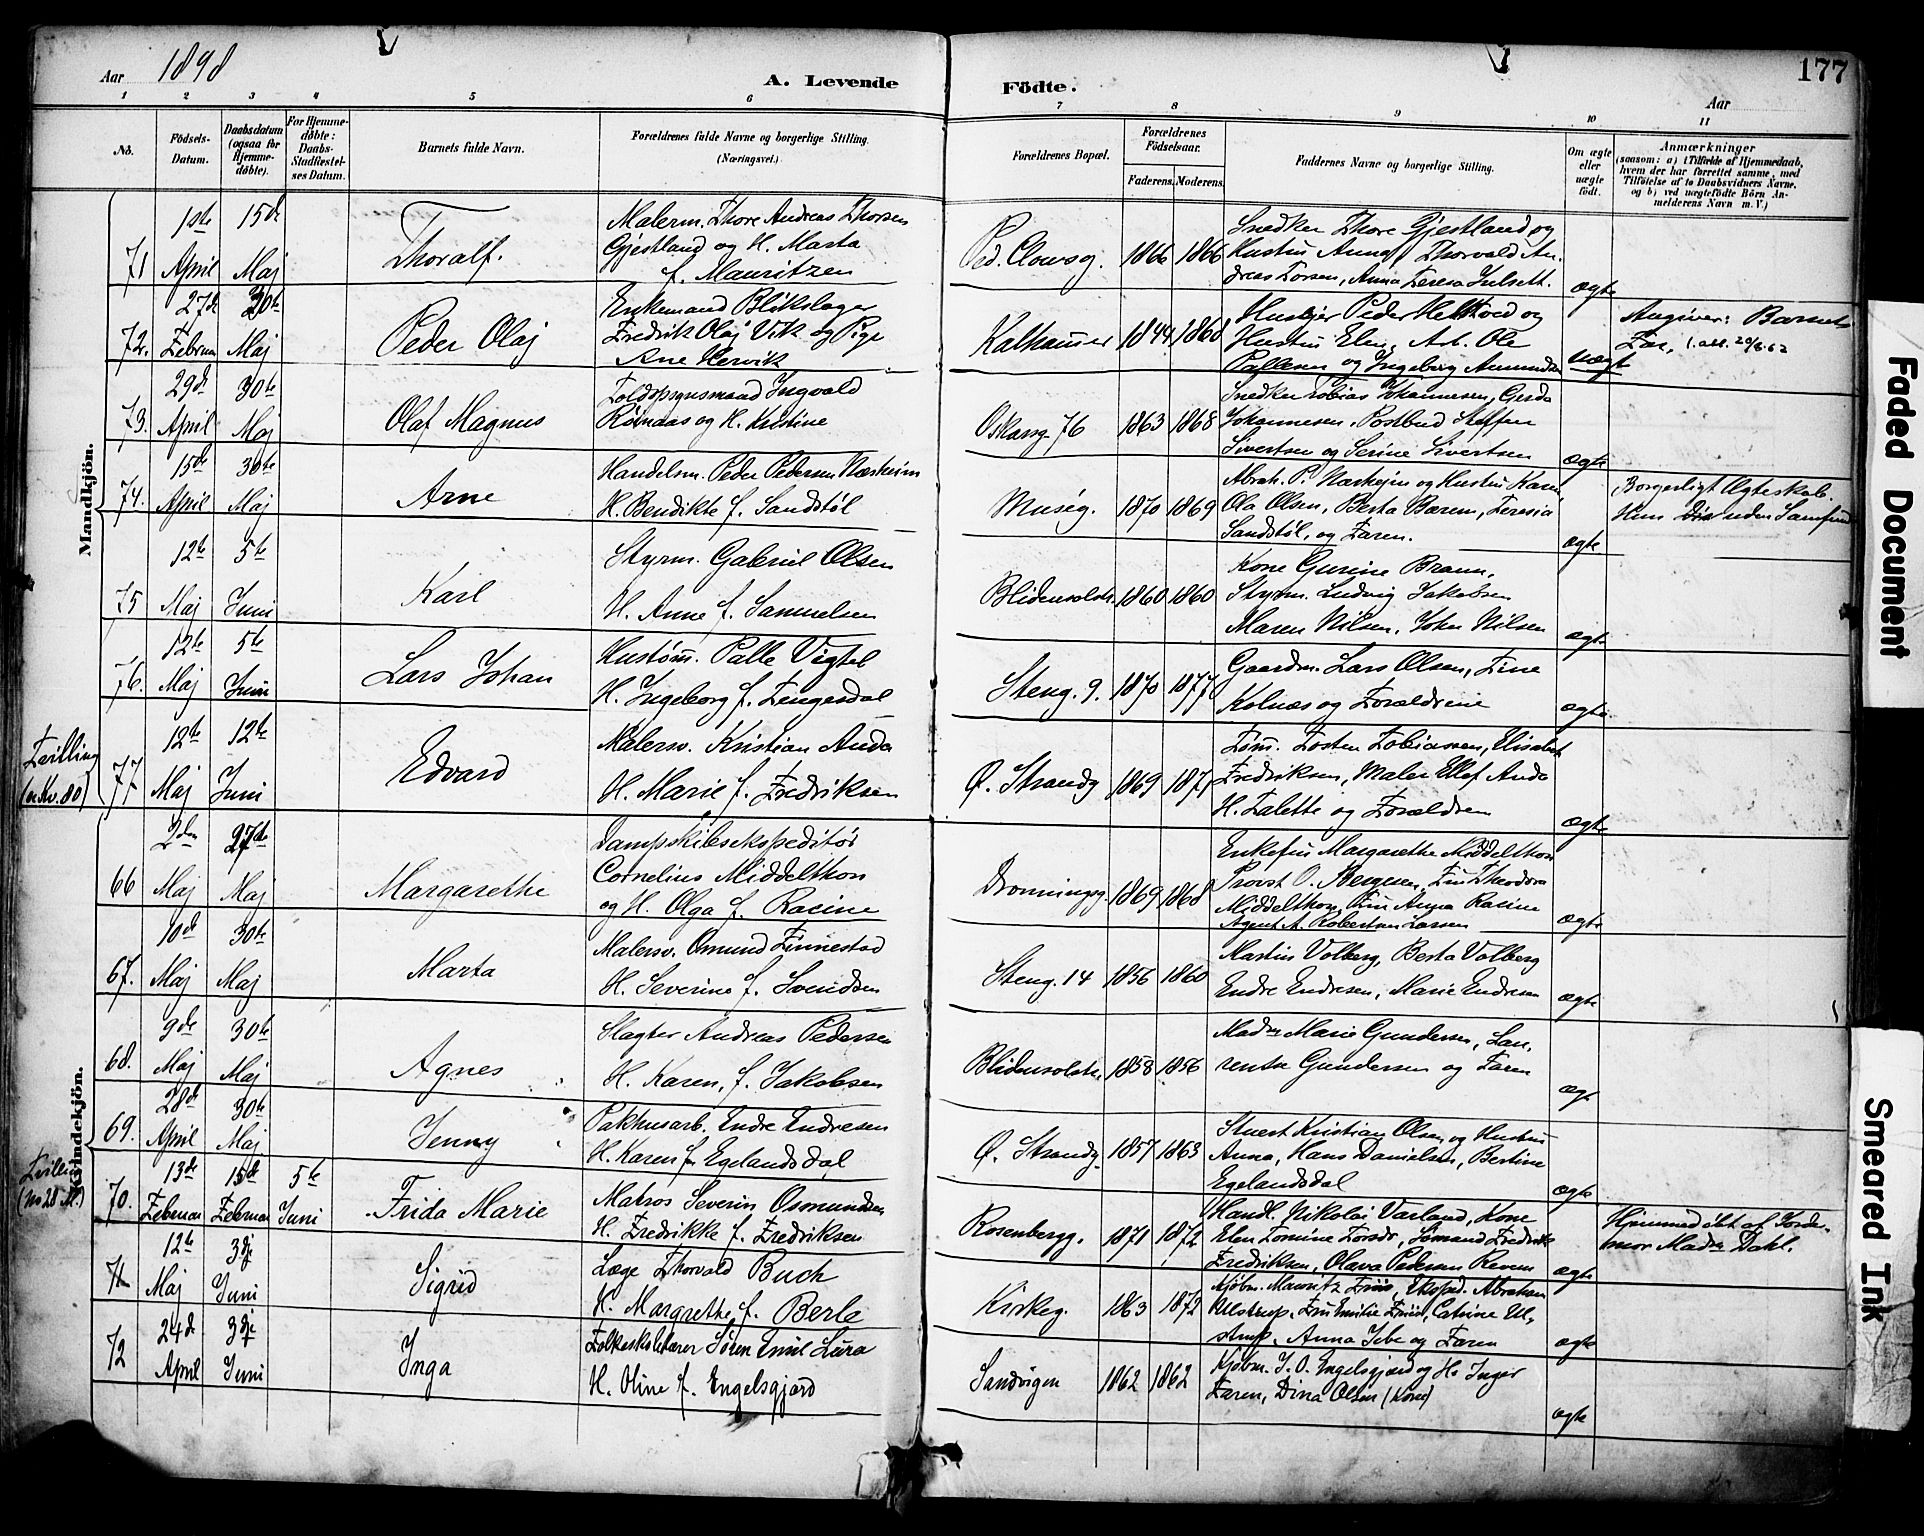 Aar 1898
A. Levende Födte.
177
Aar
1 2 3 4 5 6 7 8 9 10 11
No.
Födsels-Datum.
Daabsdatum (ogsaa for Hjemme-døbte).
For Hjemme-døbte: Daabs-Stadfæstel-ses Datum.
Barnets fulde Navn.
Forældrenes fulde Navne og borgerlige Stilling. (Næringsvei.)
Forældrenes Bopæl.
Forældrenes Födselsaar.
Faderens. Moderens.
Faddernes Navne og borgerlige Stilling.
Om ægte eller uægte födt.
Anmærkninger
(saasom: a) i Tilfælde af Hjemmedaab,
hvem der har forrettet samme, med
Tilföielse af to Daabsvidners Navne,
og b) ved uægtefödte Börn An-
melderens Navn m. V.)
Mandkjön.
71 1ste April 15de Maj
Thoralf.
Malerm. Thore Andreas Thorsen
Gjestland og H. Marta
f. Mauritzen
Ped. Clausg. 1866 1866
Snedker Thore Gjestland og
Hustru Anna, Thorvald An-
dreas Torsen, Anna Teresa
ægte
72. 27de Februar 30te Maj
Peder Olaj
Enkemand Blikslager
Fredrik Olaj Vik og Pige
Ane Hervik
Kalhammer 1844 1868
Husejer Peder og
Hustru Elen, Arb. Ole
Pallesen og Ingeborg Amundsen
uægt
Angiver: Barnets
Far,
73. 29de April 30te Maj
Olaf Magnus
Toldopsynsmand Ingvald
Rømaas og H. Kristine
Oskarsg. 76 1863 1868
Snedker Tobias Johannesen, Gerda
Johannesen, Postbud Steffen
Sivertsen og Serine Sivertsen
ægte
74. 15de April 30te Maj
Arne
Handelsm. Peder Pedersen Næsheim
H. Bendikte f. Sandstøl
Muség. 1870 1869
Abrah. P. Næshejm og Hustru Karen,
Ola Olsen, Berta Barem, Teresia
Sandstøl, og Faren.
ægte
Borgerligt Ægteskab.
uden Samfund
75 12te Maj 5te Juni
Karl
Styrm. Gabriel Olsen
H. Anne f. Samuelsen
Blidensolstr. 1860 1860
Kone Gurine Braun,
Styrm. Ludvig Jakobsen
Maren Nilsen, John Nilsen
ægte
76. 12te Maj 5te Juni
Lars Johan
Hustøm. Palle Vigtel
H. Ingeborg f. Tengesdal
Steng. 9. 1870 1877
Gaardm. Lars Olsen, Tine
Kolnæs og Forældrene
ægte
Tvilling
(se Kv. 80)
77 12te Maj 12te Juni
Edvard
Malersv. Kristian Auda
H. Marie f. Fredriksen
Ø. Strandg 1869 1871
Tøm. Tosten Tobiassen, Elisabet
Fredriksen, Maler Ellef Auda
H. Talette og Forældren
ægte
Kvindekjön.
66 2den Maj 27de Maj
Margarethe
Dampskibsekspeditør
Cornelius Middelthon
og H. Olga f. Racine
Dronningg. 1869 1868
Enkefru Margarethe Middelthon
Provst O. Bergesen, Fru Theodora
Middelthon, Fru Anna Racine
Agent A. Robertson Larsen
ægte
67. 10de Maj 30te Maj
Marta
Malersv. Omund Finnestad
H. Severine f. Svendsen
Steng. 14 1856 1860
Martin Volberg, Berta Volberg
Endre Endresen, Marie Endresen
ægte
68. 9de Maj 30te Maj
Agnes
Slagter Andreas Pedersen
H. Karen, f. Jakobsen
Blidensolstr. 1858 1856
Madm Marie Gundersen, Lau-
rentse Gundersen og Faren
ægt
69. 28de April 30te Maj
Jenny
Pakhusarb. Endre Endresen
H. Karen f. Egelandsdal
Ø. Strandg. 1857 1863
Stuert Kristian Olsen og Hustru
Anna, Hans Danielsen, Bertine
Egelandsdal
ægte
Tvilling
(No 28 M.)
70. 13de Februar 15de Februar 5te Juni
Frida Marie
Matros Severin Osmundsen
H. Fredrikke f. Fredriksen
Rosenbergg. 1871 1872
Handl. Nikolai Varland, Kone
Elen Tomine, Sømand Fredrik
Fredriksen, Olava Pedersen Reven
ægte
Hjemmedøbt af Jorde-
mor Madm Dahl.
71 12te Maj 3dje Juni
Sigrid
Læge Thorvald Buch
H. Margrethe f. Berle
Kirkeg. 1863 1872
Kjøbm. Mauritz Friis, Eksped. Abraham
Ulstrup, Fru Emilie Friis, Catrine Ul-
strup, Anna Ibe og Faren
ægte
72 24de April 3dje Juni
Inga
Folkeskolelærer Søren Emil Lura
H. Oline f. Engelsgjærd
Sandvigen 1862 1862
Kjøbm. J. O. Engelsgjærd og H. Inger
Faren, Dina Olsen (Kone)
ægte
Faded Document
Smeared Ink